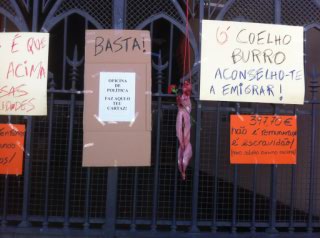 É QUE
ACIMA
SAS
IDADES
BASTA!
OFICINA
DE
POLÍTICA
FAZ AQUI O
TEU
CARTAZ!
Ó COELHO
BURRO
ACONSELHO-TE
A EMIGRAR!
397,70 €
não é remuneração
é escravidão!